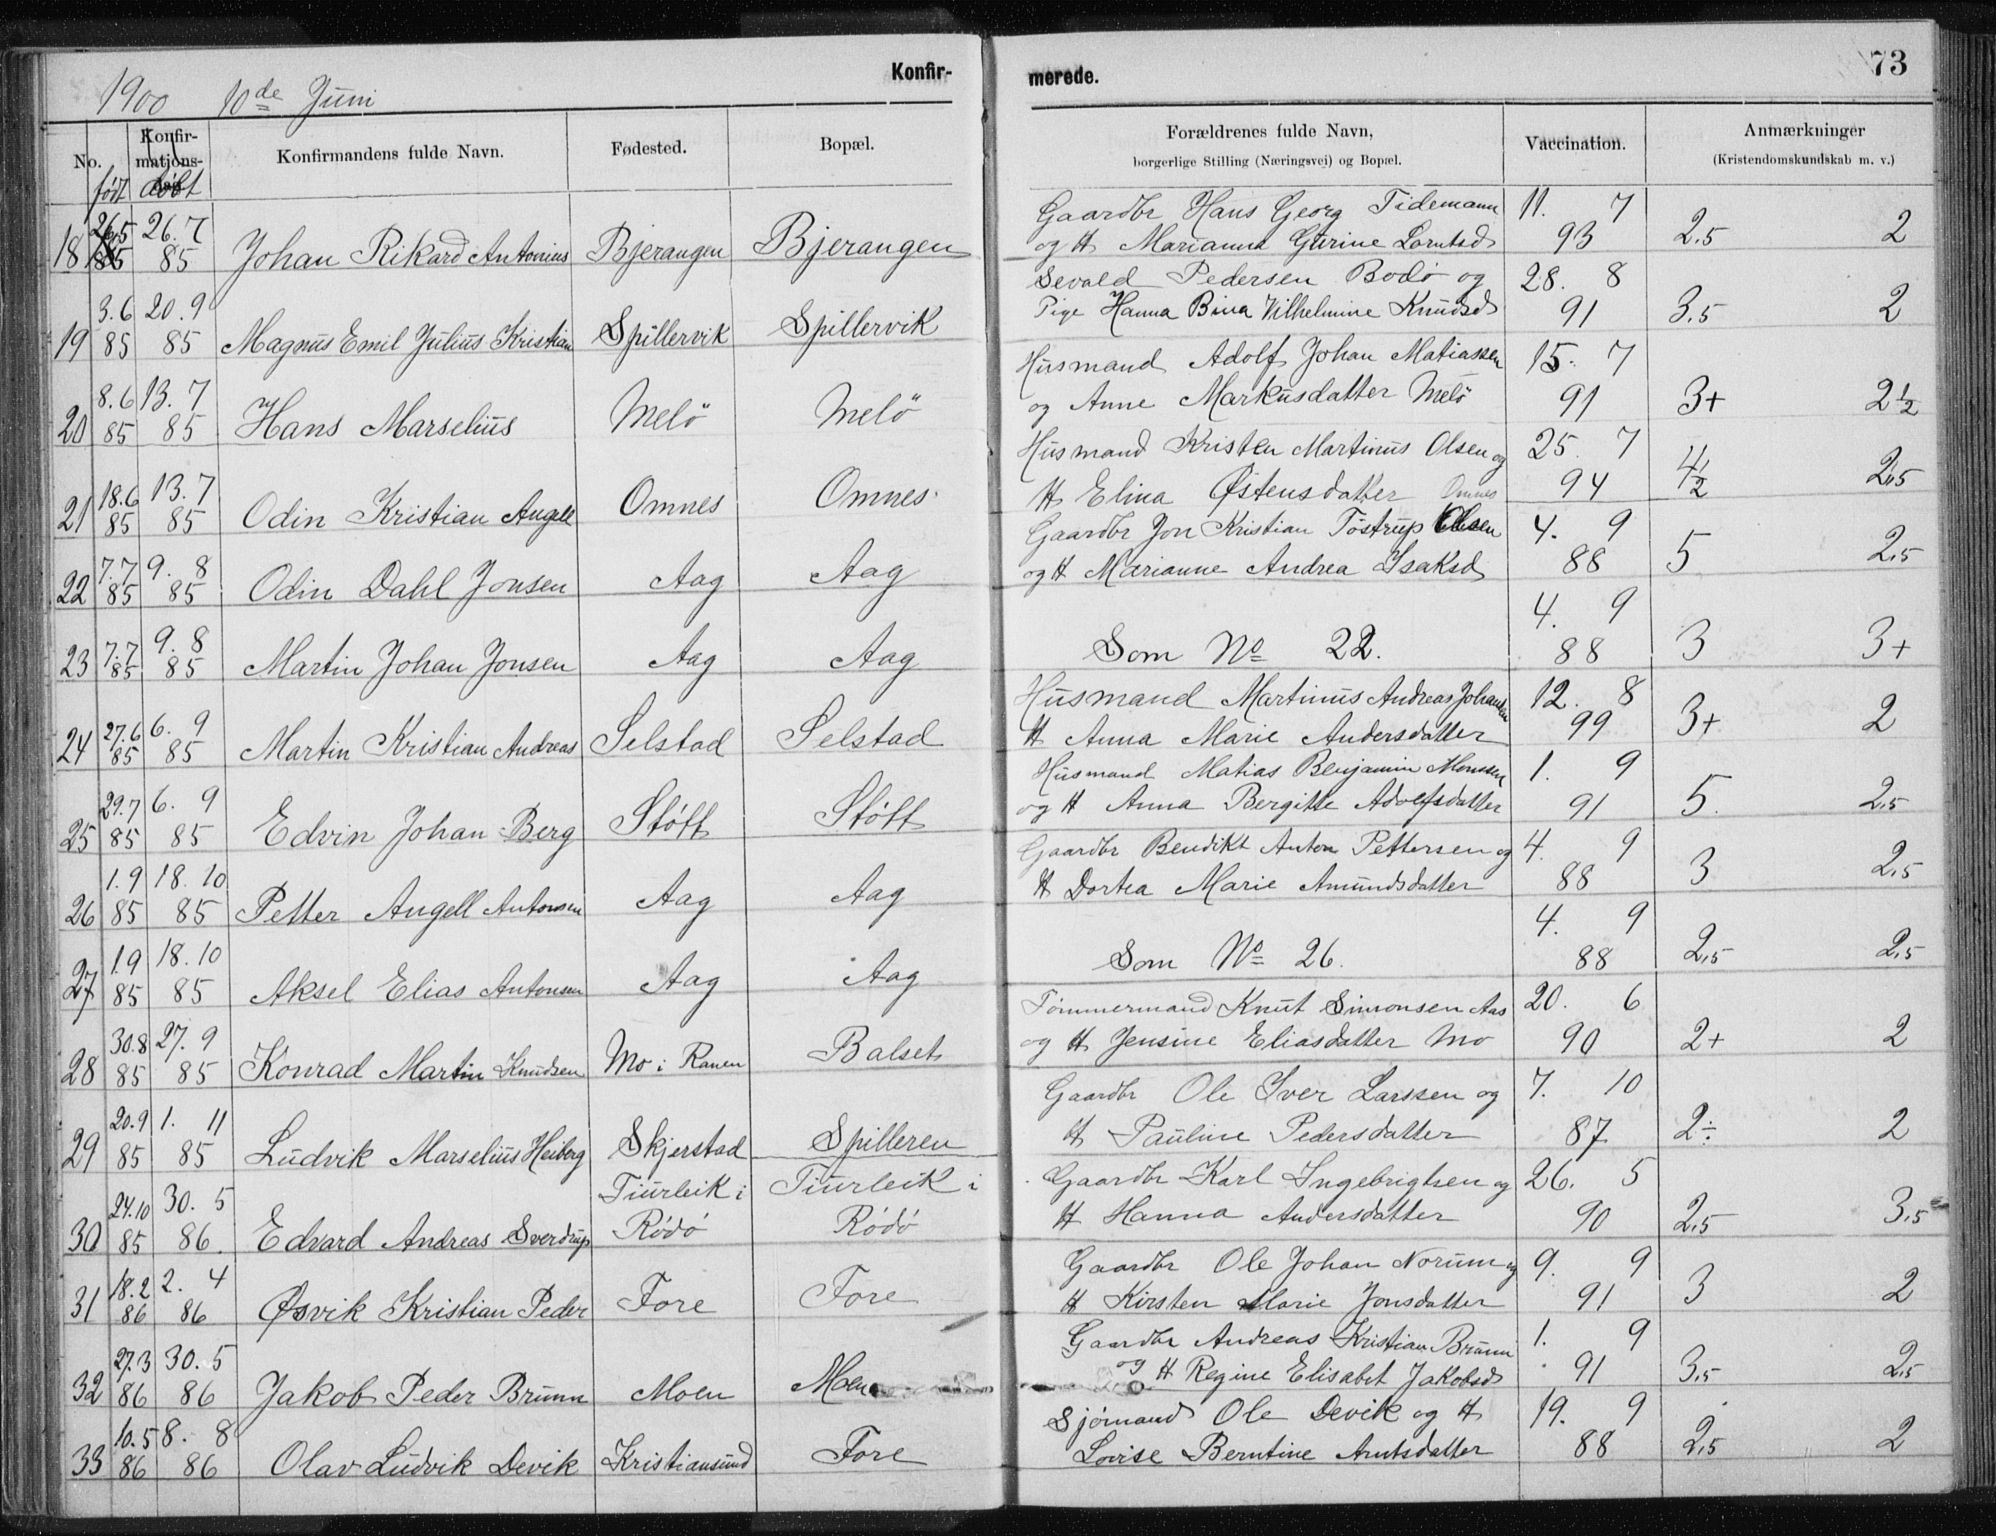 Konfir-
merede.
73
1900 10de Juni
No. født Konfir-matjons- døbt Konfirmandens fulde Navn. Fødested. Bopæl. Forældrenes fulde Navn, borgerlige Stilling (Næringsvei) og Bopæl. Vaccination. Anmærkninger (Kristendomskundskab m. v.)
18 26.5 85 26.7 85 Johan Rikard Antonius Bjerangen Bjerangen Gaardbr Hans Georg Tidemann 11. 7
og H Marianna Gurine Lorntsd 93 2,5 2
19 3.6 85 20.9 85 Magnus Emil Julius Kristian Spillervik Spillervik Sevald Pedersen Bodö og 28. 8
Pige Hanna Bina Vilhelmine Knudsd 91 3,5 2
20 8.6 85 13.7 85 Hans Marselius Melö Melö Husmand Adolf Johan Matiassen 15. 7
og Anne Markusdatter Melö 91 3+ 2½
21 18.6 85 13.7 85 Odin Kristian Angell Omnes Omnes. Husmand Kristen Martinus Olsen og 25. 7
H Elina Østensdatter Omnes 94 4½ 2,5
22 7.7 85 9. 8 85 Odin Dahl Jonsen Aag Aag Gaardbr Jon Kristian Töstrup Olsen 4. 9
og H Marianne Andrea Isaksd 88 5 2,5
23 7.7 85 9. 8 85 Martin Johan Jonsen Aag Aag 4. 9
Som No 22. 88 3 3+
24 27.6 85 6. 9 85 Martin Kristian Andreas Selstad Selstad Husmand Martinus Andreas Johansen 12. 8
H Anna Marie Andersdatter 99 3+ 2
25 29.7 85 6. 9 85 Edvin Johan Berg Støtt Støtt Husmand Matias Benjamin Monssen 1. 9
og H Anna Bergitte Adolfsdatter 91 5. 2,5
26 1.9 85 18.10 85 Petter Angell Antonsen Aag Aag Gaardbr Bendikt Anton Pettersen og 4. 9
H Dortea Marie Amundsdatter 88 3 2,5
27 1.9 85 18.10 85 Aksel Elias Antonsen Aag Aag 4. 9
Som No 26. 88 2,5 2,5
28 30.8 85 27.9 85 Konrad Martin Knudsen Mo i Ranen Balset Tømmermand Knut Simonsen Aas 20. 6
og H Jensine Eliasdatter Mo 90 2+ 2
29 20.9 85 1. 11 85 Ludvik Marselius Heiberg Skjerstad Spilleren Gaardbr Ole Iver Larssen og 7. 10
H Pauline Pedersdatter 87 2÷ 2
30 24.10 85 30. 5 86. Edvard Andreas Sverdrup Tiurleik i Rødø Tiurleik i Rødø Gaardbr Karl Ingebrigtsen og 26. 5
H Hanna Andersdatter 90 2,5 3,5
31 18.2 86 2. 4 86 Øsvik Kristian Peder Fore Fore Gaardbr Ole Johan Norum og 9. 9
H Kirsten Marie Jonsdatter 91 3 2
32 27.3 86 30.5 86 Jakob Peder Brunn Moen Moen Gaardbr Andreas Kristian Brunn 1. 9
og H Regine Elisabet Jakobsd 91 3,5 2,5
33 10.5 86 8. 8 86 Olav Ludvik Devik Kristiansund Fore Sjömand Ole Devik og H 19. 9
Lovise Berntine Arntsdatter 88 2,5 2